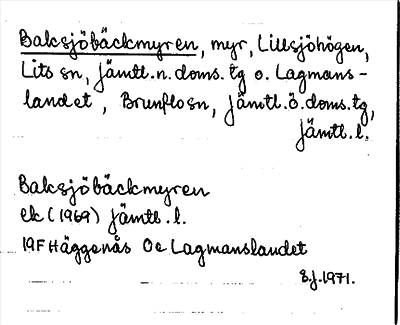 Baksjöbäckmyren, myr, Lillsjöhögen,
Lits sn, Jämtl.n.doms.tg o. Lagmans-
landet, Brunflo sn, Jämtl.ö.doms.tg,
Jämtl.l.
Baksjöbäckmyren
ek (1969) Jämtl.l.
19F Häggenås Oe Lagmanslandet
1971.